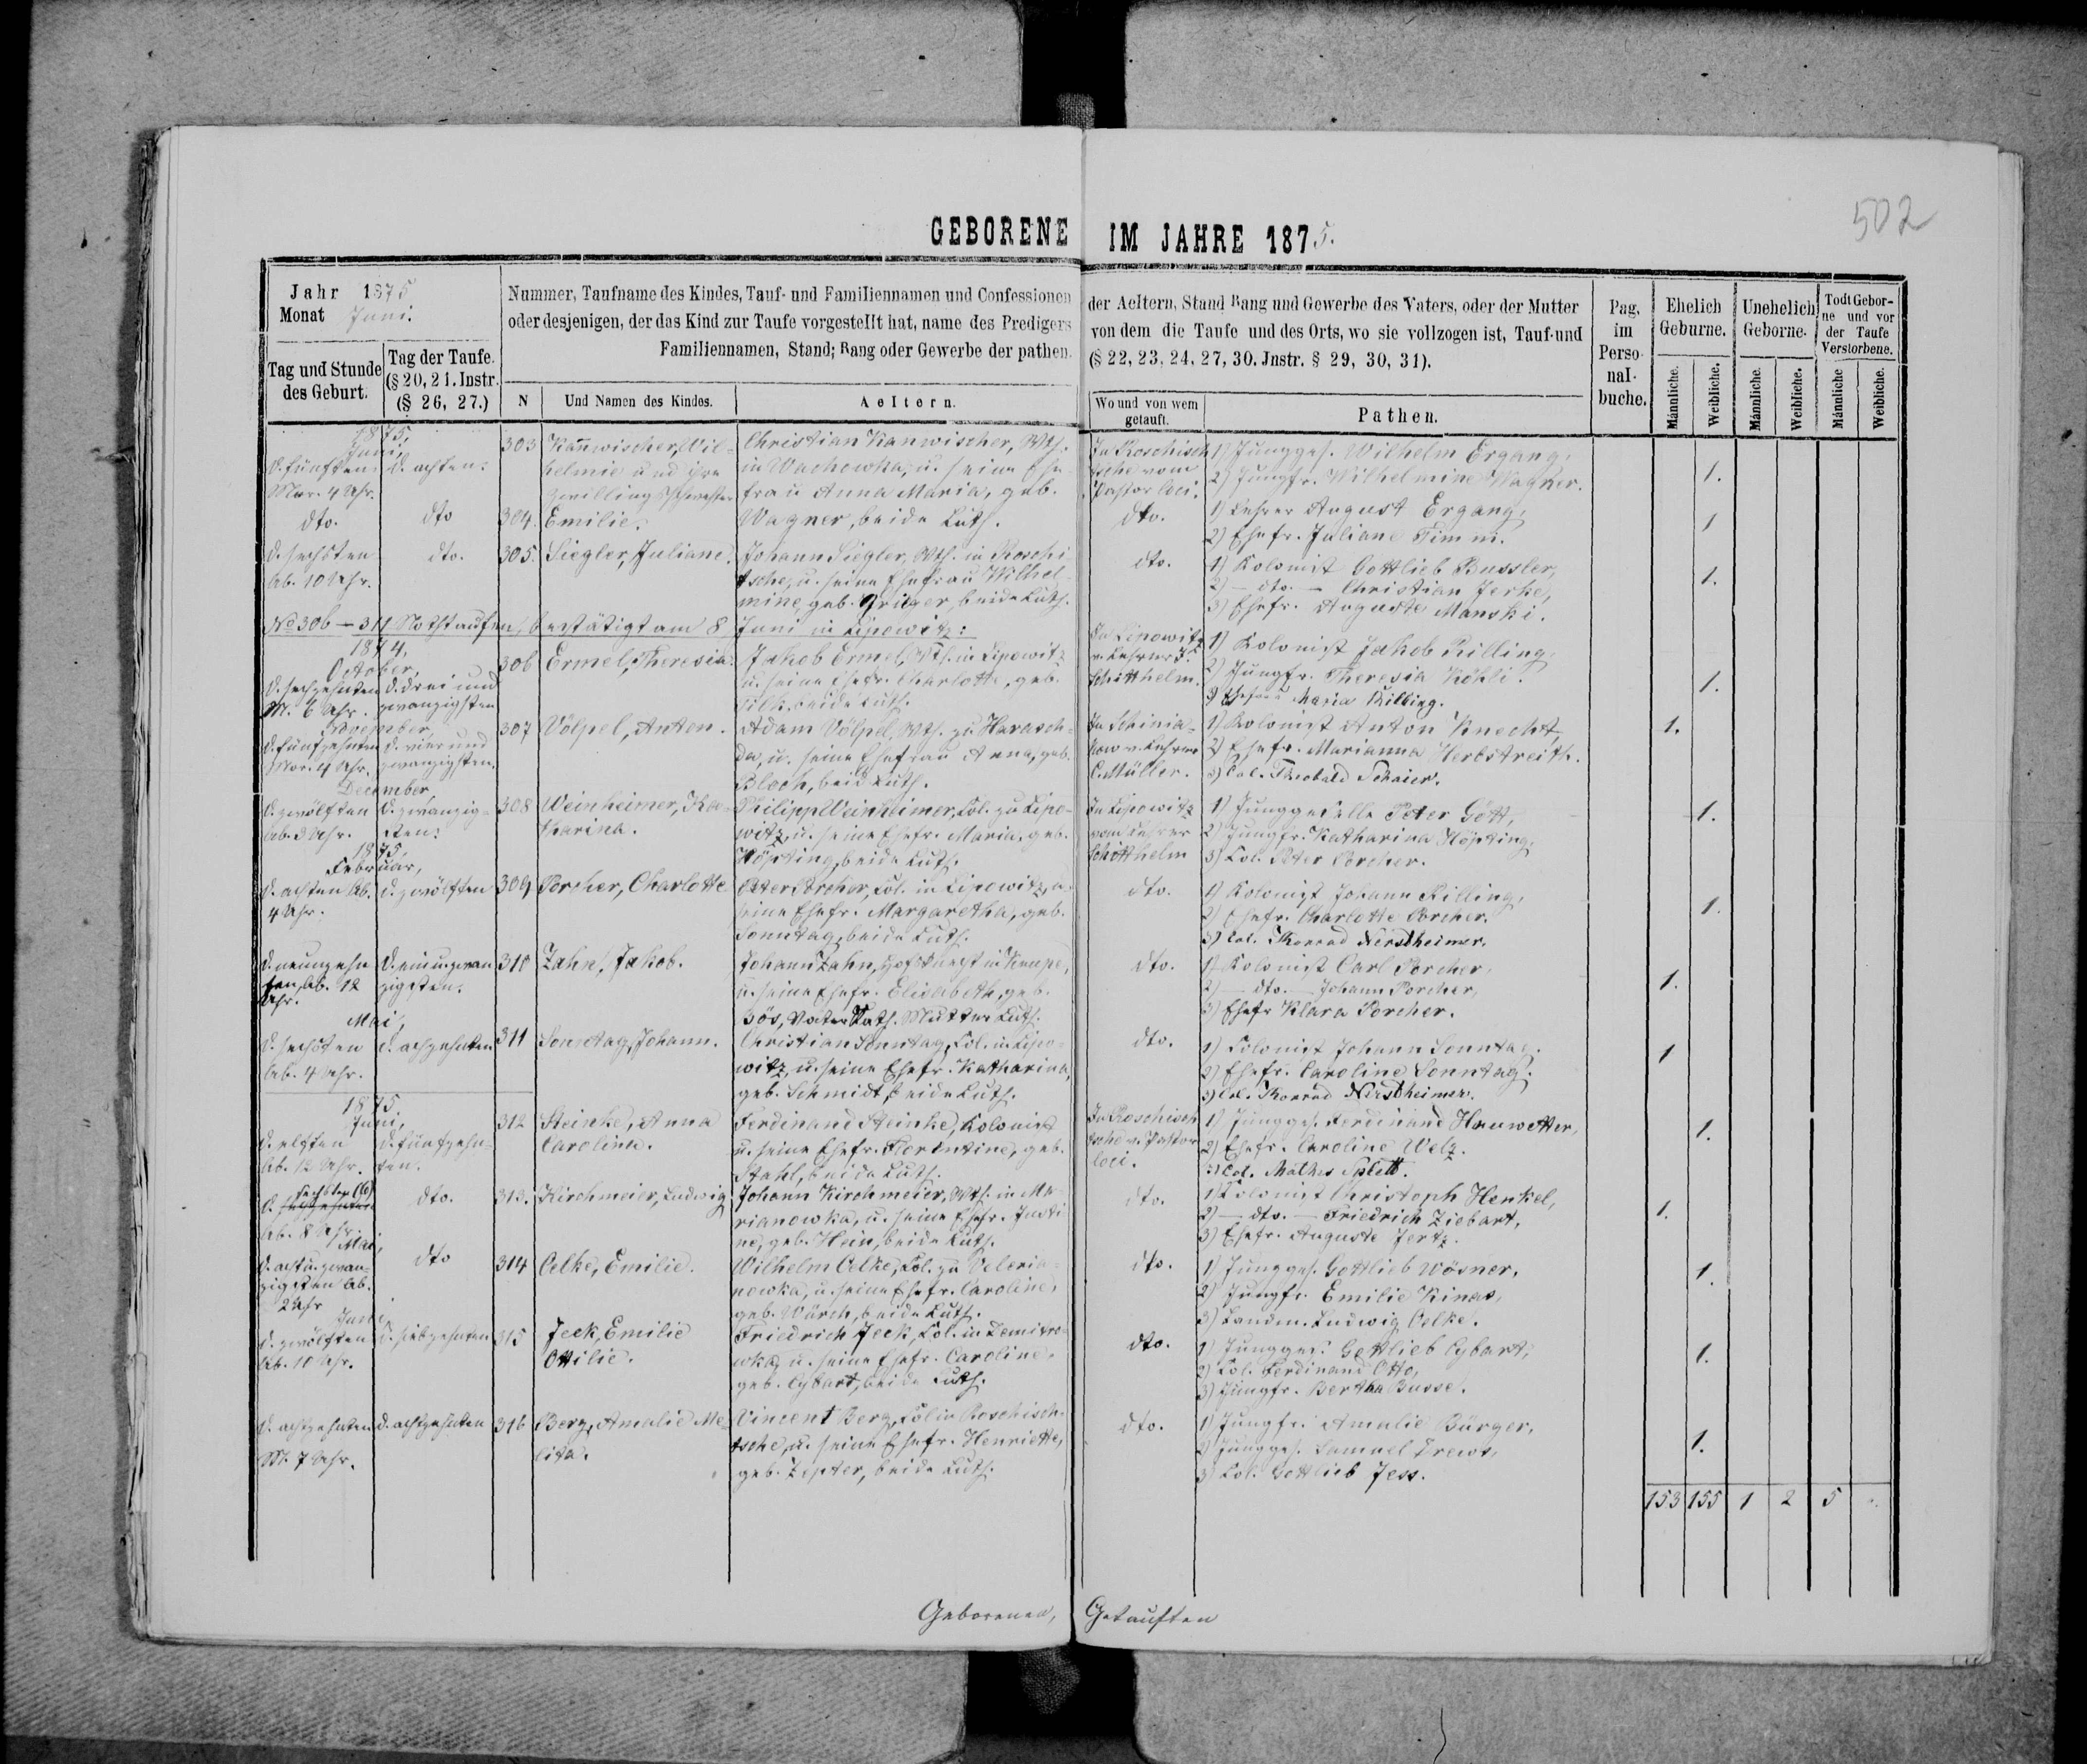 502
GEBORENE IM JAHRE 1875.
Jahr 1875
Monat Juni.
Tag und Stunde des Geburt.
Tag der Taufe. (§ 20, 21. Instr. (§ 26, 27.)
Nummer, Taufname des Kindes, Tauf- und Familiennamen und Confessionen der Aeltern, Stand Rang und Gewerbe des Vaters, oder der Mutter
oder desjenigen, der das Kind zur Taufe vorgestellt hat, name des Predigers von dem die Taufe und des Orts, wo sie vollzogen ist, Tauf-und
Familiennamen, Stand; Rang oder Gewerbe der pathen. (§ 22, 23, 24, 27, 30. Jnstr. § 29, 30, 31).
N
Und Namen des Kindes.
Aeltern.
Wo und von wem getauft.
Pathen.
Pag. im Perso-nal-buche.
Ehelich Geburne.
Unehelich Geborne.
Todt Gebor-ne und vor der Taufe Verstorbene.
Männliche.
Weibliche.
Männliche.
Weibliche.
Männliche
Weibliche.
1875,
Juni,
d. fünften
Mor. 4 Uhr.
d. achten.
303
Kanwischer, Wil-
helmie und ihre
Zwillingsschwester
Christian Kanwischer, Wth.
in Wachowka, u. seine Ehe-
frau Anna Maria, geb.
In Roschisch
tsche vom
Pastor loci.
1) Jungges. Wilhelm Ergang,
2) Jungfr. Wilhelmine Wagner.
1.
dto.
dto
304.
Emilie.
Wagner, beide Luth.
dto.
1) Lehrer August Ergang,
2) Ehefr. Juliane Timm.
1
d. sechsten
Ab. 10 Uhr.
dto.
305.
Siegler, Juliane.
Johann Siegler, Wth. in Roschi
tsche, u. seine Ehefrau Wilhel-
mine, geb. beide Luth.
dto.
1) Kolonist Gottlieb Bussler,
2) — dto. — Christian Jerke,
3) Ehefr. Auguste Manski.
1.
No 306 — 311 Nothtaufen, bestätigt am 8 Juni in Lipowitz:
1874,
October,
d. sechzehnten
M. 6 Uhr.
d. drei und
zwanzigsten
306
Ermel, Theresia.
Jakob Ermel, Wth. in Lipowitz
u. seine Ehefr. Charlotte, geb.
beide Luth.
In Lipowitz
v. Lehrer J.
Schitthelm.
1) Kolonist Jakob Killing,
2) Jungfr. Theresia Köhli.
3) Ehefrau Maria Killing.
1.
November,
d. fünfzehnten
Mor. 4 Uhr.
d. vier und
zwanzigsten.
307
Völpel, Anton.
Adam Völpel, Wth. zu Harasch-
da, u. seine Ehefrau Anna, geb.
Bloch, beid Luth.
In Schinia-
kow v. Lehrer
C. Müller.
1) Kolonist Anton Knecht,
2) Ehefr. Marianna Herbstreith.
3) Col. Theobald Schaier.
1.
December
d. zwölften
Ab. 3 Uhr.
d. zwanzig-
sten.
308
Weinheimer, Ka-
tharina.
Philipp Weinheimer, Col. zu Lipo-
witz, u. seine Ehefr. Maria, geb.
Höpting, beide Luth.
In Lipowitz
vom Lehrer
Schitthelm
1) Junggeselle Peter Gött,
2) Jungfr. Katharina Höpting,
3) Col. Peter Porcher.
1.
1875,
Februar,
d. achten Ab.
4 Uhr.
d. zwölften
309
Porcher, Charlotte
Peter Porcher, Col. in Lipowitz, u.
seine Ehefr. Margaretha, geb.
Sonntag, beide Luth.
dto.
1) Kolonist Johann Killing,
2) Ehefr. Charlotte Porcher.
3) Col. Konrad Nerstheimer.
1.
d. neunzehn
ten, Ab. 12
Uhr.
d. ein u. zwan
zigsten.
310
Zahn, Jakob.
Johann Zahn, Hofsknecht in Knupe,
u. seine Ehefr. Elisabeth, geb.
Bös, Vater Kath. Mutter Luth.
dto.
1) Kolonist Carl Porcher,
2) — dto. — Johann Porcher,
3) Ehefr. Klara Porcher.
1.
Mai,
d. sechsten
Ab. 4 Uhr.
d. achzehnten
311
Sonntag, Johann.
Christian Sonntag, Col. in Lipo-
witz, u. seine Ehefr. Katharina,
geb. Schmidt, beide Luth.
dto.
1) Colonist Johann Sonntag.
2) Ehefr. Caroline Sonntag.
3) Col. Konrad Nerstheimer.
1
1875.
Juni,
d. elften
Ab. 12 Uhr.
d. fünfzehn-
ten.
312
Steinke, Anna
Carolina.
Ferdinand Steinke, Kolonist
u. seine Ehefr. Florentine, geb.
Stahl, beide Luth.
In Roschisch
tsche v. Pastor
loci.
1) Jungges. Ferdinand Hauwetter,
2) Ehefr. Caroline Welz.
3) Col. Mathes Splett.
1.
d. sechsten (6)
Ab. 8 Uhr.
dto.
313.
Kirchmeier, Ludwig
Johann Kirchmeier, Wth. in Ma-
rianowka, u. seine Ehefr. Justi
ne, geb. Hein, beide Luth.
dto.
1) Kolonist Christoph Henkel,
2) — dto. — Friedrich Ziebart,
3) Ehefr. Auguste Jertz.
1.
Mai,
d. acht u. zwan-
zigsten Ab.
2 Uhr
dto
314
Oelke, Emilie.
Wilhelm Oelke, Col. zu Valeria-
nowka, u. seine Ehefr. Caroline,
geb. Würch, beide Luth.
dto.
1) Jungges. Gottlieb Wösner,
2) Jungfr. Emilie Kinas,
3) Landm. Ludwig Oelke.
1.
Juni
d. zwölften
Ab. 10 Uhr.
d. siebzehnten
315
Jeck, Emilie
Ottilie.
Friedrich Jeck, Col. in Demitro-
wka, u. seine Ehefr. Caroline,
geb. Cybart, beide Luth.
dto.
1) Jungges. Gottlieb Cybart,
2) Col. Ferdinand Otto,
3) Jungfr. Bertha Busse.
1.
d. achtzehnten
M. 7 Uhr.
d. achtzehnten
316
Berg, Amalie Me-
lita.
Vincent Berg, Col. in Roschisch-
tsche, u. seine Ehefr. Henriette,
geb. Zepter, beide Luth.
dto.
1) Jungfr. Amalie Bürger,
2) Jungges. Samuel Drews,
3) Col. Gottlieb Jess.
1.
153 155 1 2 5
Geborenen, Getauften